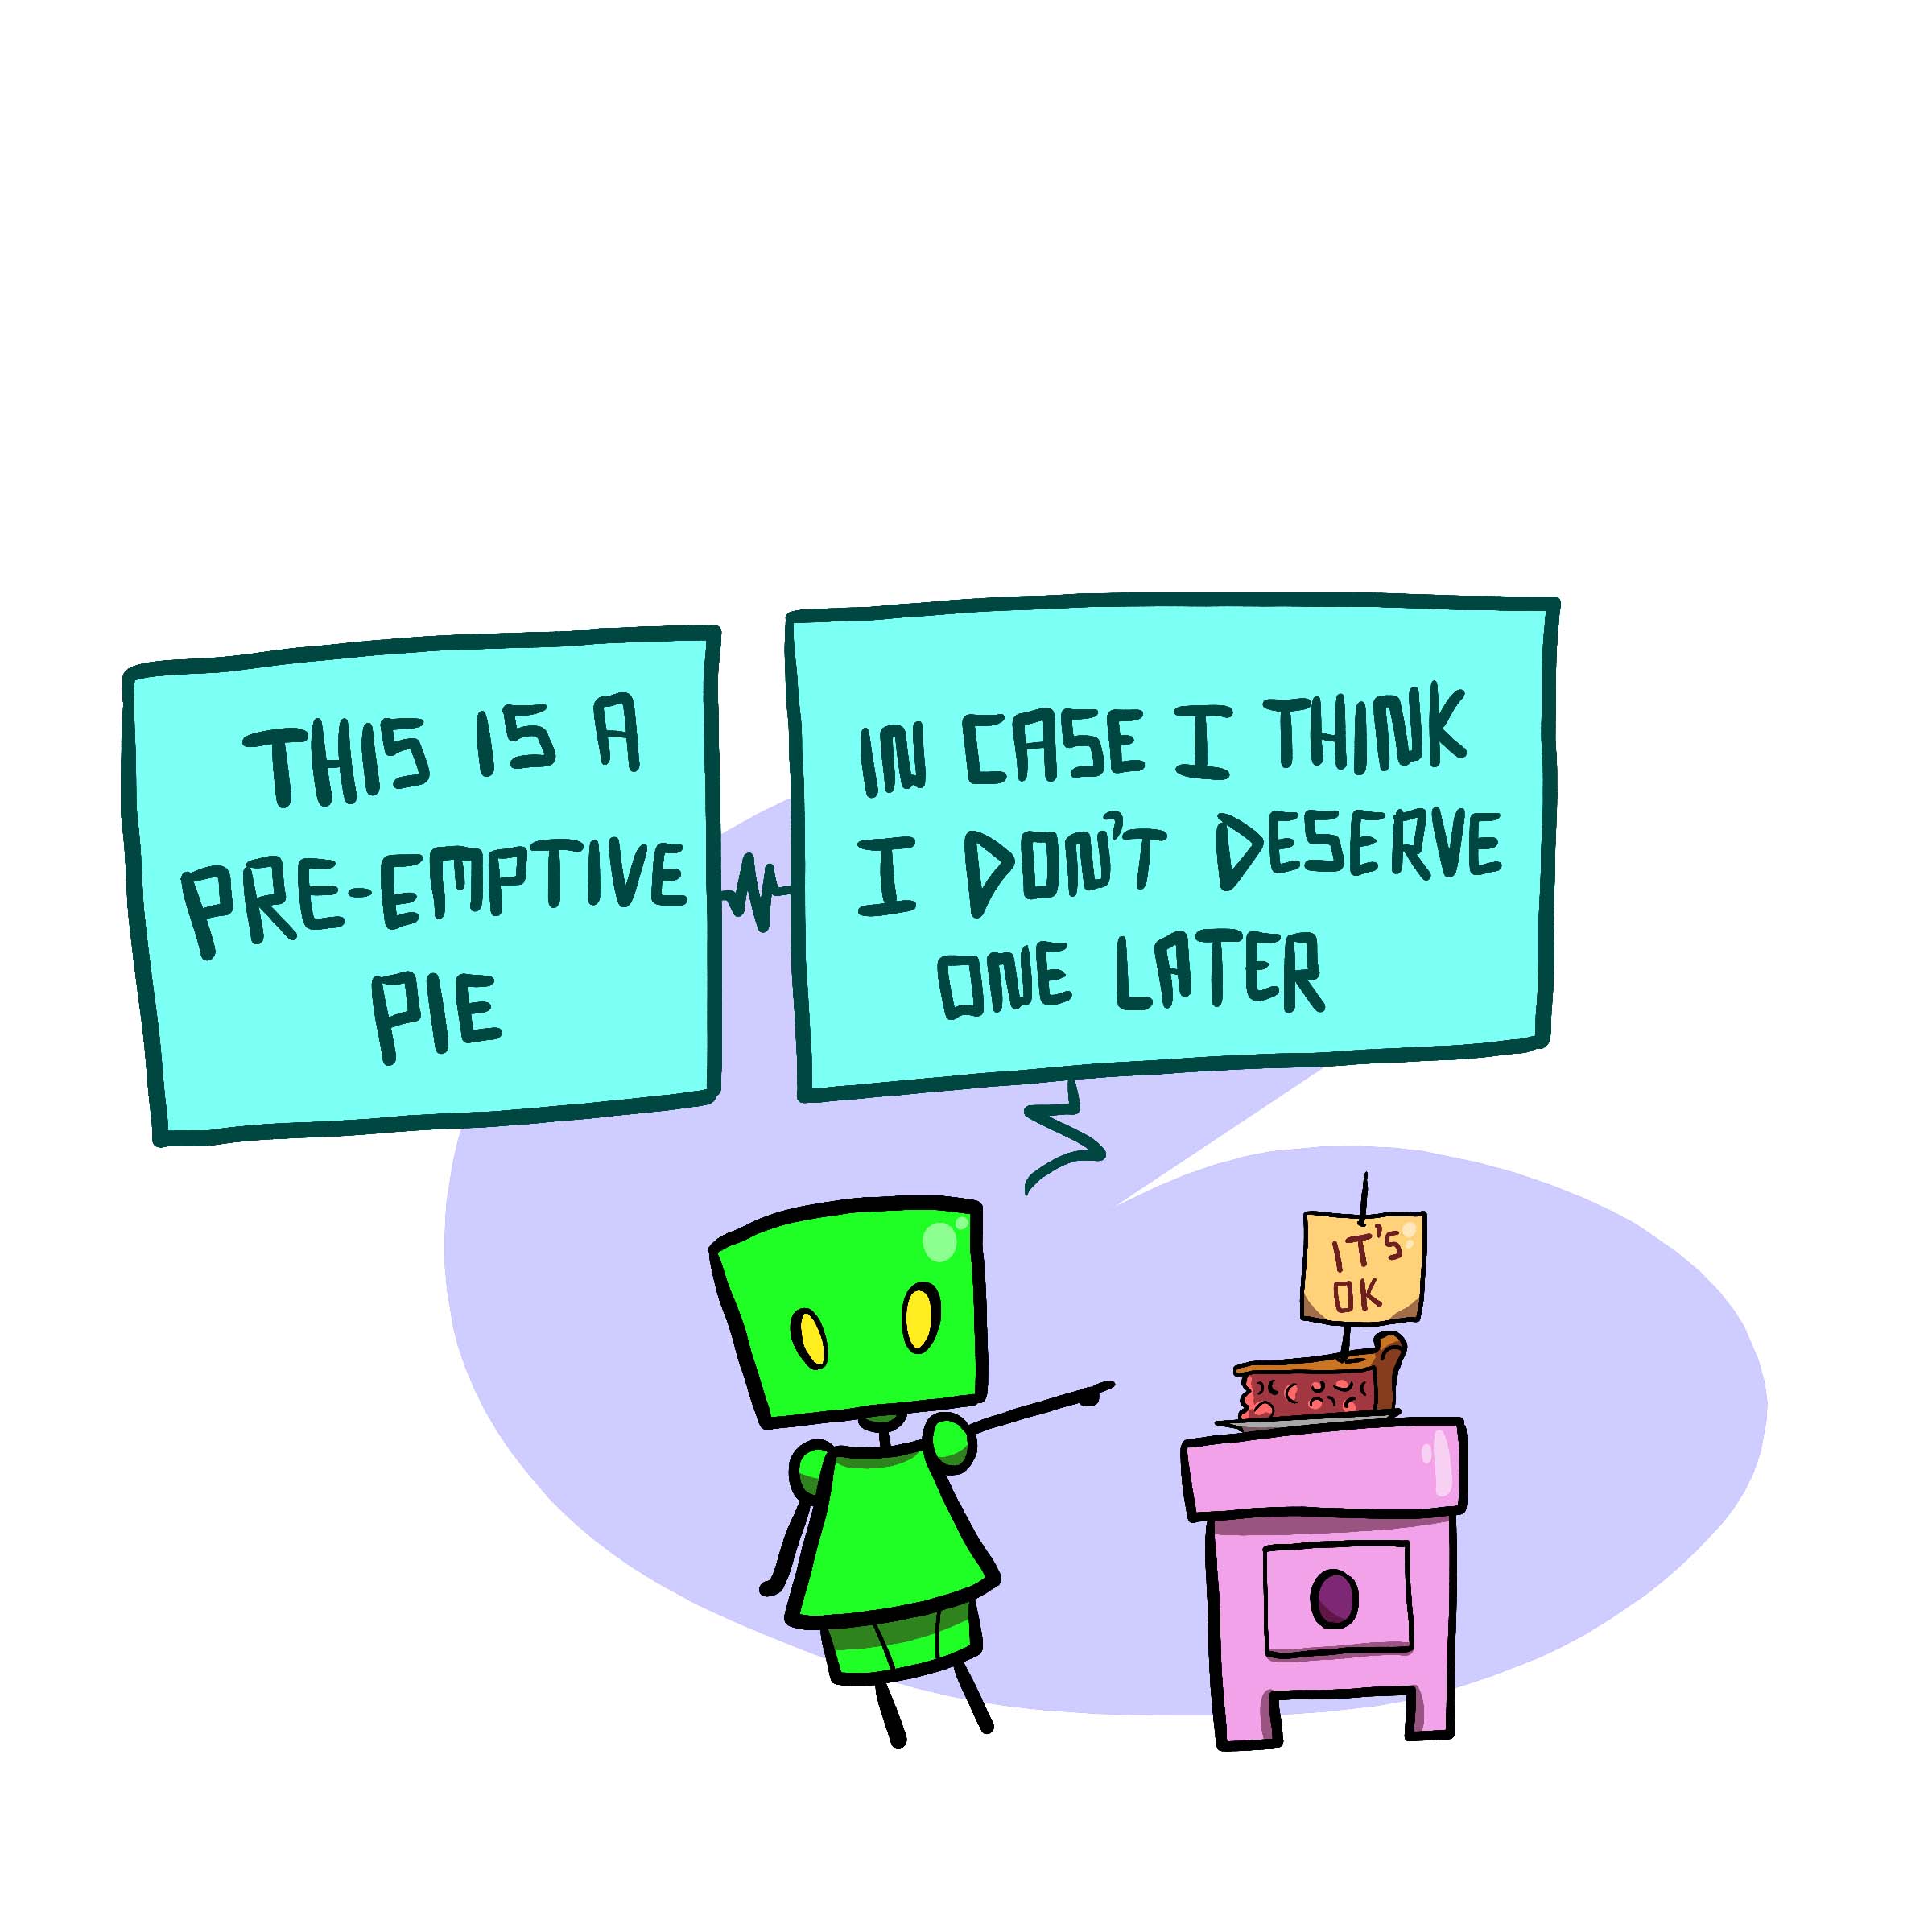 THIS IS A
PRE-EMPTIVE
PIE
IN CASE I THINK
I DON'T DESERVE
ONE LATER
IT'S
OK